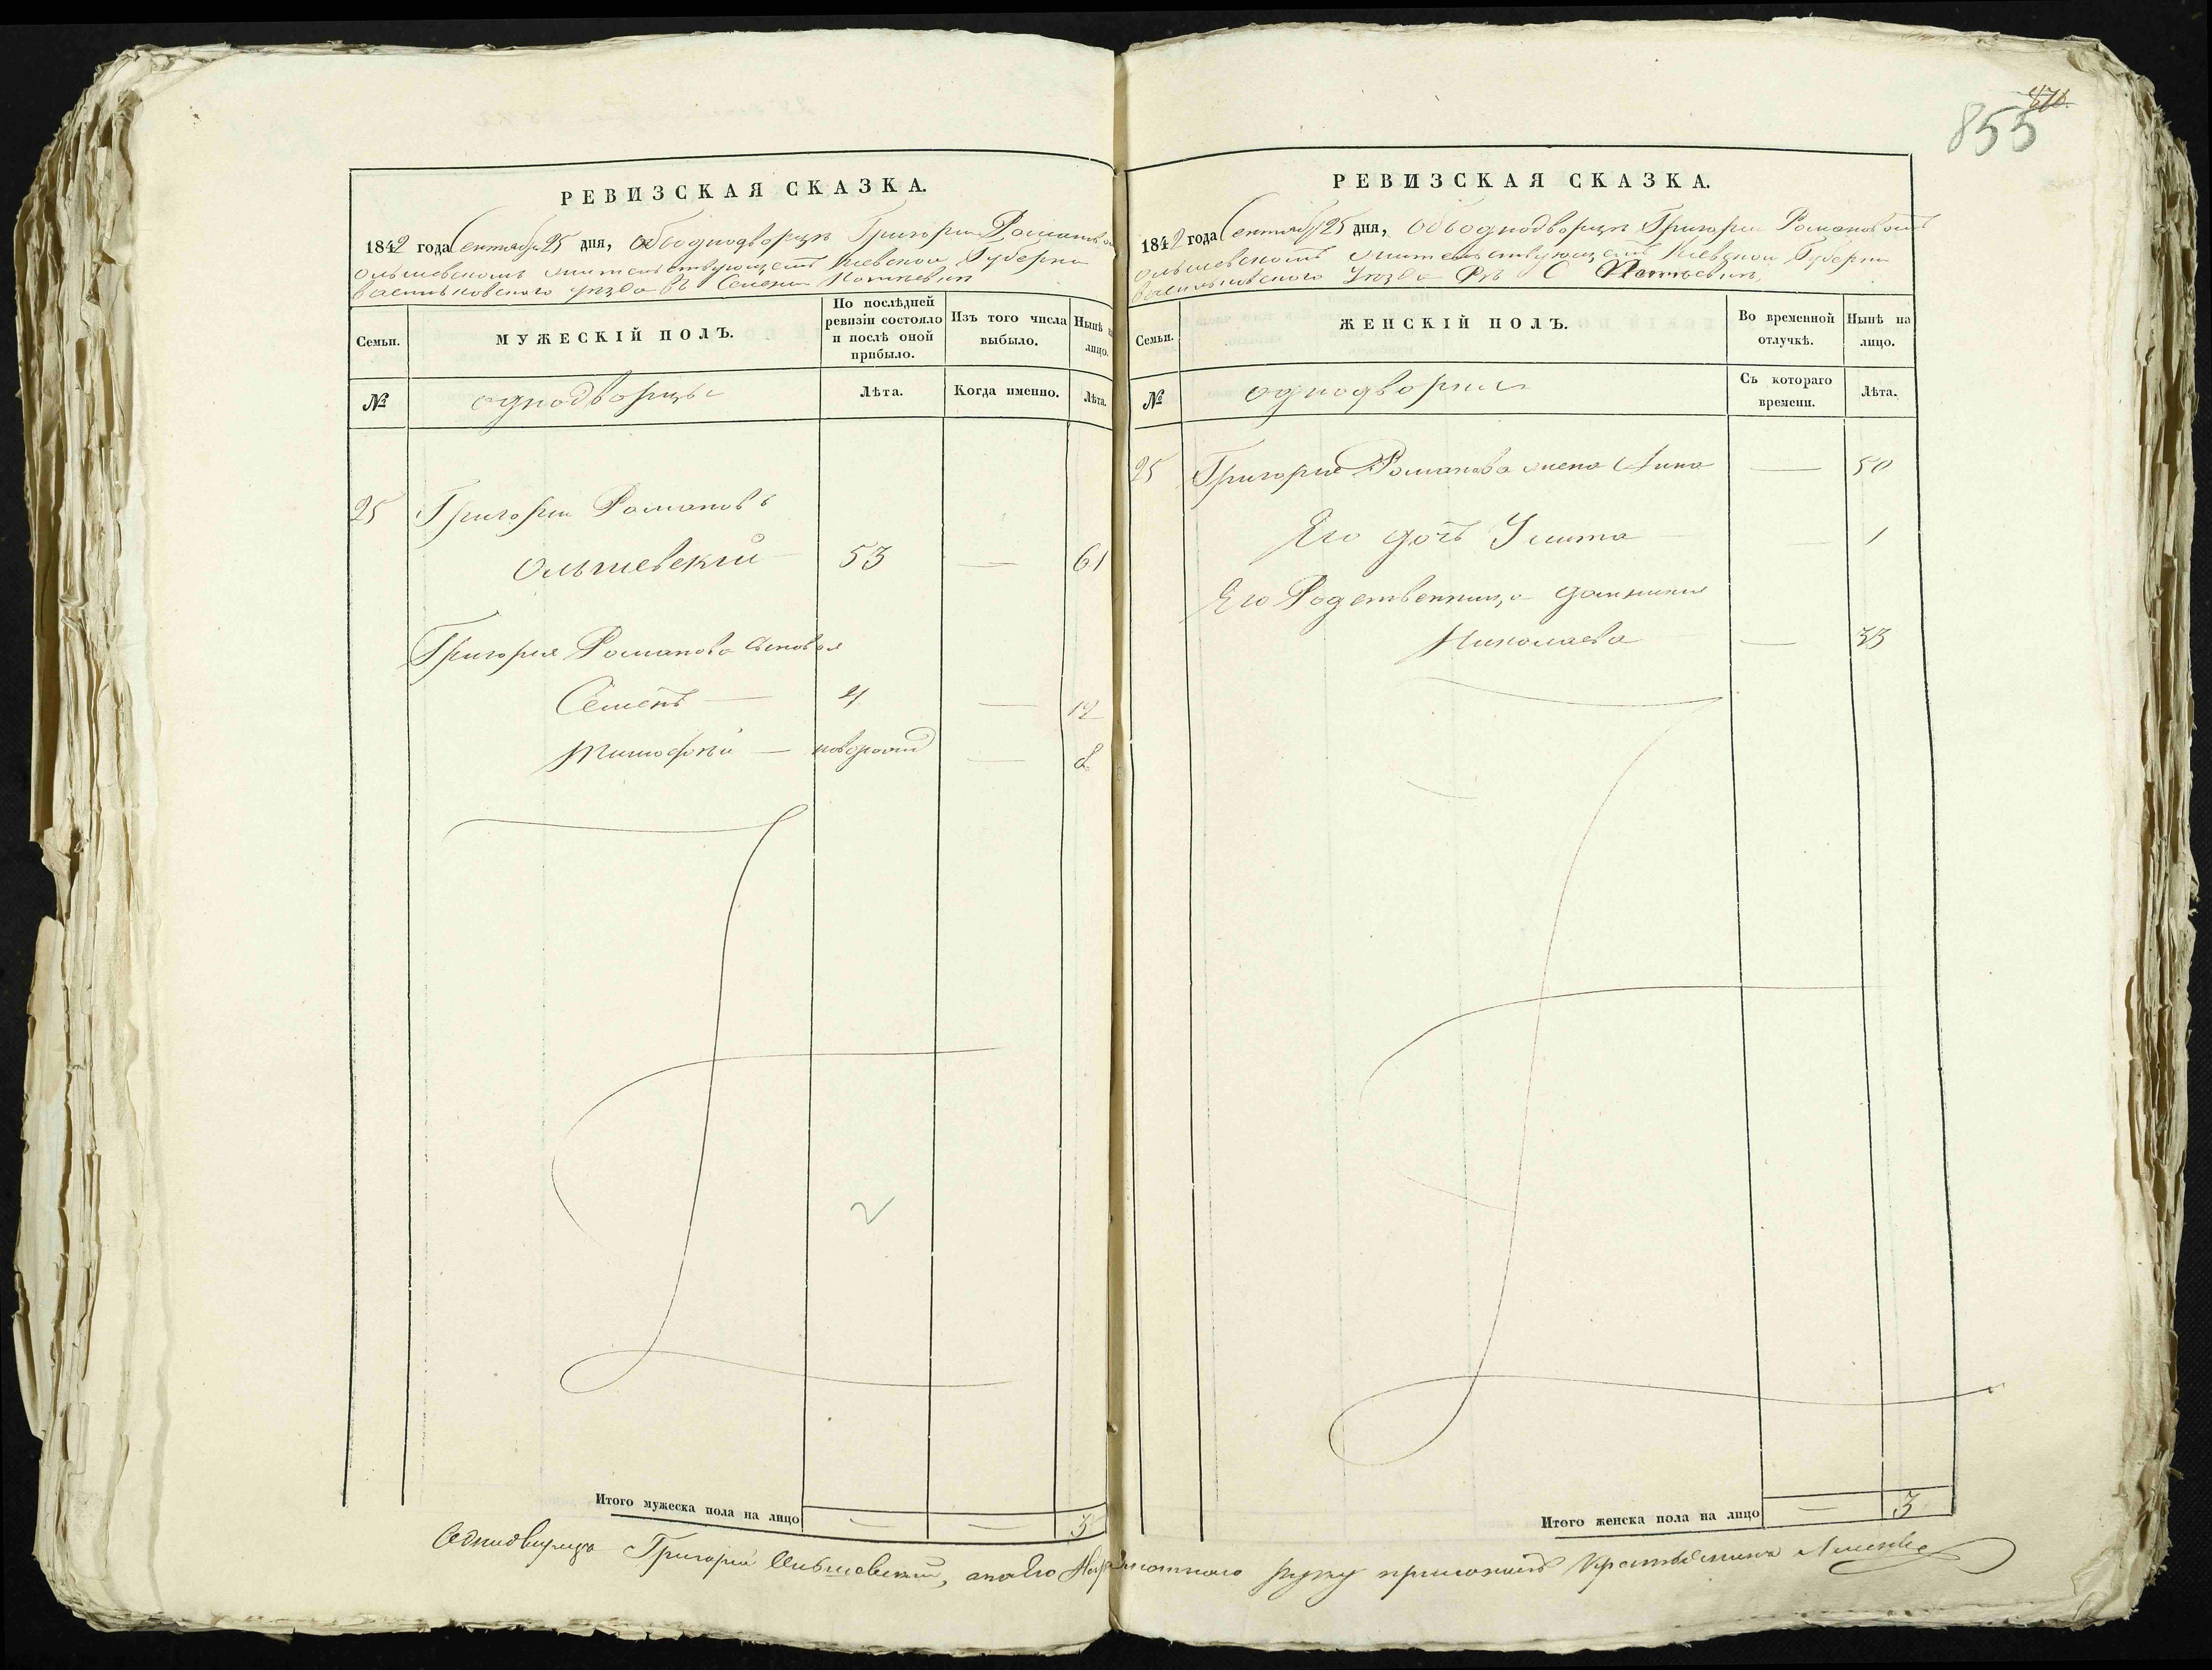 РЕВИЗСКАЯ СКАЗКА.
1842 года Сентября 25 дня, объ однодворцѣ Григоріи Романовомъ
Ольшевскомъ жительствующемъ Кіевской Губерніи
Васильковскаго уѣзда въ Селеніи
Семьи.
МУЖЕСКІЙ ПОЛЪ.
По послѣдней ревизіи состояло и послѣ оной прибыло.
Изъ того числа выбыло.
Нынѣ на лицо.
№
однодворцы
Лѣта.
Когда именно.
Лѣта.
25 Григорій Романовъ
Ольшевскій 53 — 61
Григорія Романова сыновья
Семенъ — 4 — 12
Тимофей — новорожд — 8
2
Итого мужеска пола на лицо — — 3
855
870
РЕВИЗСКАЯ СКАЗКА.
1842 года Сентября 25 дня, объ однодворцѣ Григоріи Романовомъ
Ольшевскомъ жительствующемъ Кіевской Губерніи
Васильковскаго Уѣзда Въ С
Семьи.
ЖЕНСКІЙ ПОЛЪ.
Во временной отлучкѣ.
Нынѣ на лицо.
№
однодворки
Съ котораго времени.
Лѣта.
25 Григорія Романова жена Анна — 50
Его дочь Улита — 1
Его Родственница Домникія
Николаева — 33
Итого женска пола на лицо — 3
Однодворецъ Григорій Ольшевскій, а за его неграмотнаго руку приложилъ